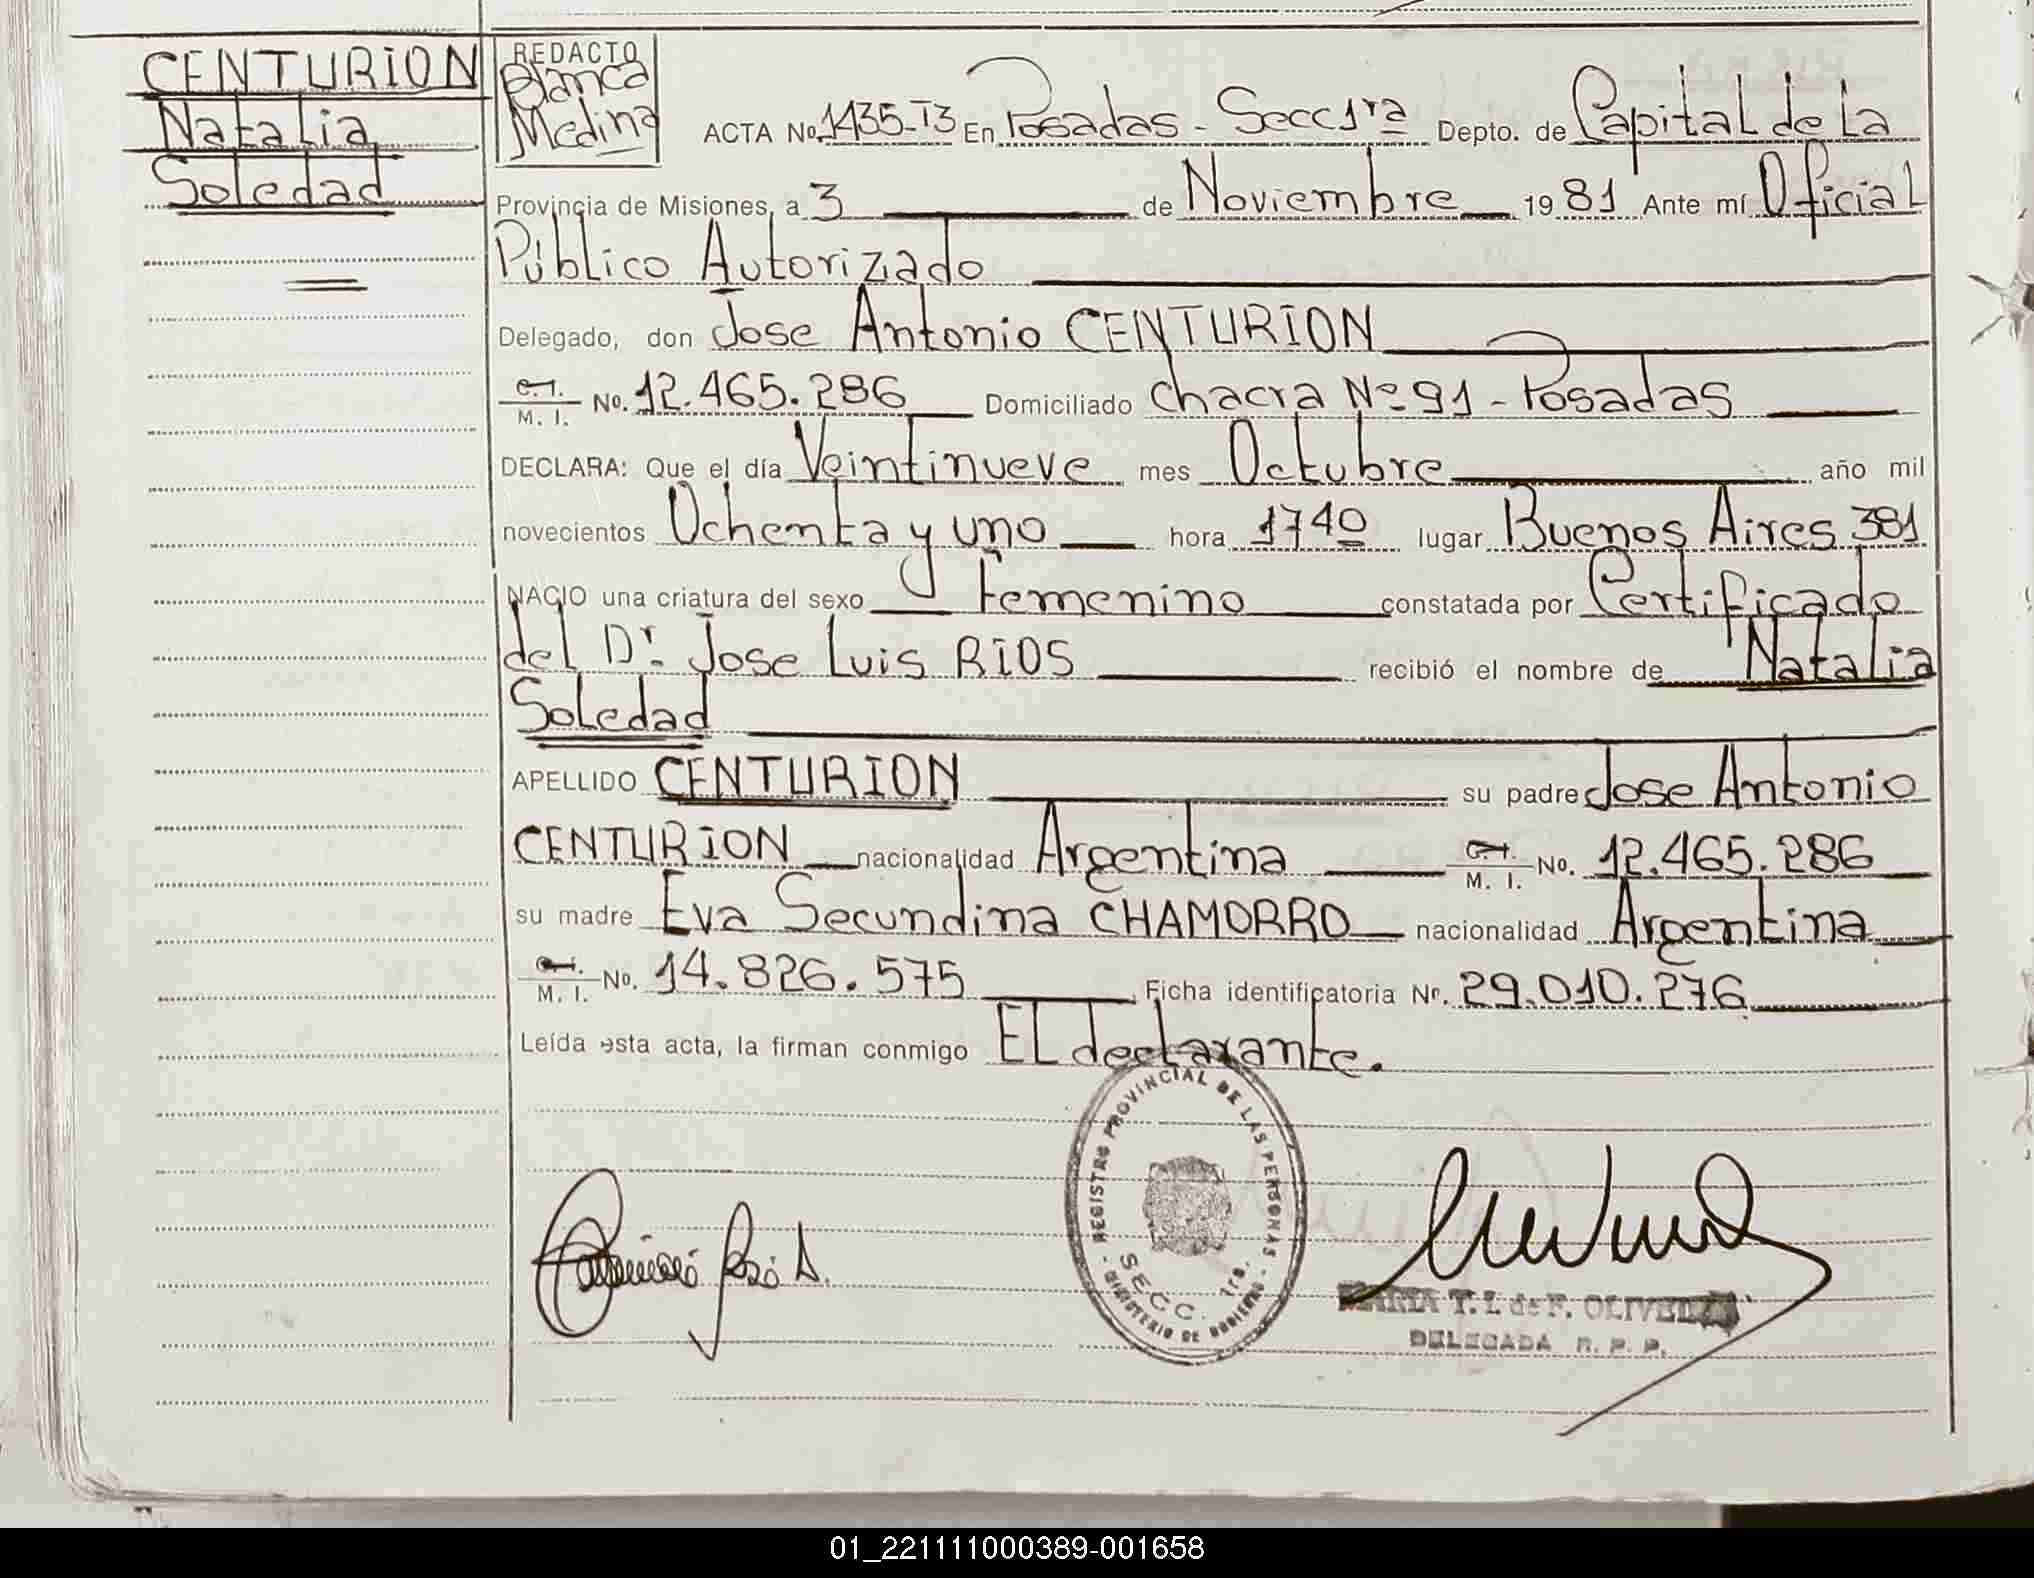 CENTURION
Natalia
Soledad
REDACTO
Blanca
Medina
ACTA No. 1435-T3 En Posadas - Secc 1ra Depto. de Capital de La
Provincia de Misiones, a 3 de Noviembre 1981 Ante mí Oficial
Público Autorizado
Delegado, don Jose Antonio CENTURION
C. I. M. I. No. 12.465.286 Domiciliado chacra Nº 91 - Posadas
DECLARA: Que el día Veintinueve mes Octubre año mil
novecientos Ochenta y uno hora 1740 lugar Buenos Aires 381
NACIO una criatura del sexo Femenino constatada por Certificado
del Dr. Jose Luis RIOS recibió el nombre de Natalia
Soledad
APELLIDO CENTURION su padre Jose Antonio
CENTURION nacionalidad Argentina C. I. M. I. No. 12.465.286
su madre Eva Secundina CHAMORRO nacionalidad Argentina
C. I. M. I. No. 14.826.575 Ficha identificatoria Nº. 29.010.276
Leída esta acta, la firman conmigo EL declarante.
REGISTRO PROVINCIAL DE LAS PERSONAS
SECC. 1ra.
MINISTERIO DE GOBIERNO
José A.
MARIA T. I. de F. OLIVEIRA
DELEGADA R. P. P.
01_221111000389-001658